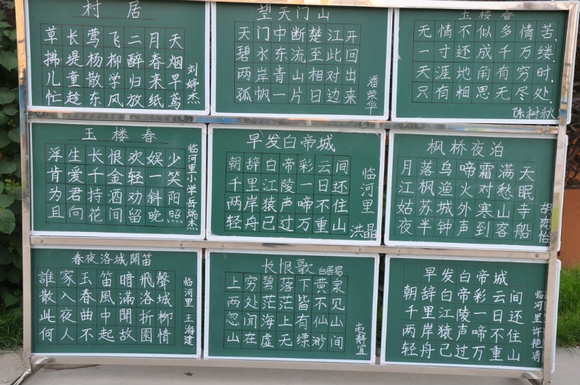 村居
草长莺飞二月天
拂堤杨柳醉春烟
儿童散学归来早
忙趁东风放纸鸢
望天门山
天门中断楚江开
碧水东流至此回
两岸青山相对出
孤帆一片日边来
潘荣华
玉楼春
无情不似多情苦,
一寸还成千万缕.
天涯地角有穷时,
只有相思无尽处
陈树秋
玉楼春
浮生长恨欢娱少
肯爱千金轻一笑
为君持酒劝斜阳
且向花间留晚照
临河里小学岳炳杰
早发白帝城
朝辞白帝彩云间
千里江陵一日还
两岸猿声啼不住
轻舟已过万重山
临河里
洪晶
枫桥夜泊
月落乌啼霜满天
江枫渔火对愁眠
姑苏城外寒山寺
夜半钟声到客船
春夜洛城聞笛
誰家玉笛暗飛聲
散入春風滿洛城
此夜曲中聞折柳
何人不起故園情
临河里 王海建
长恨歌
白居易
上穷碧落下黄泉
两处茫茫皆不见
忽闻海上有仙山
山在虚无缥缈间
早发白帝城
朝辞白帝彩云间
千里江陵一日还
两岸猿声啼不住
轻舟已过万重山
临河里